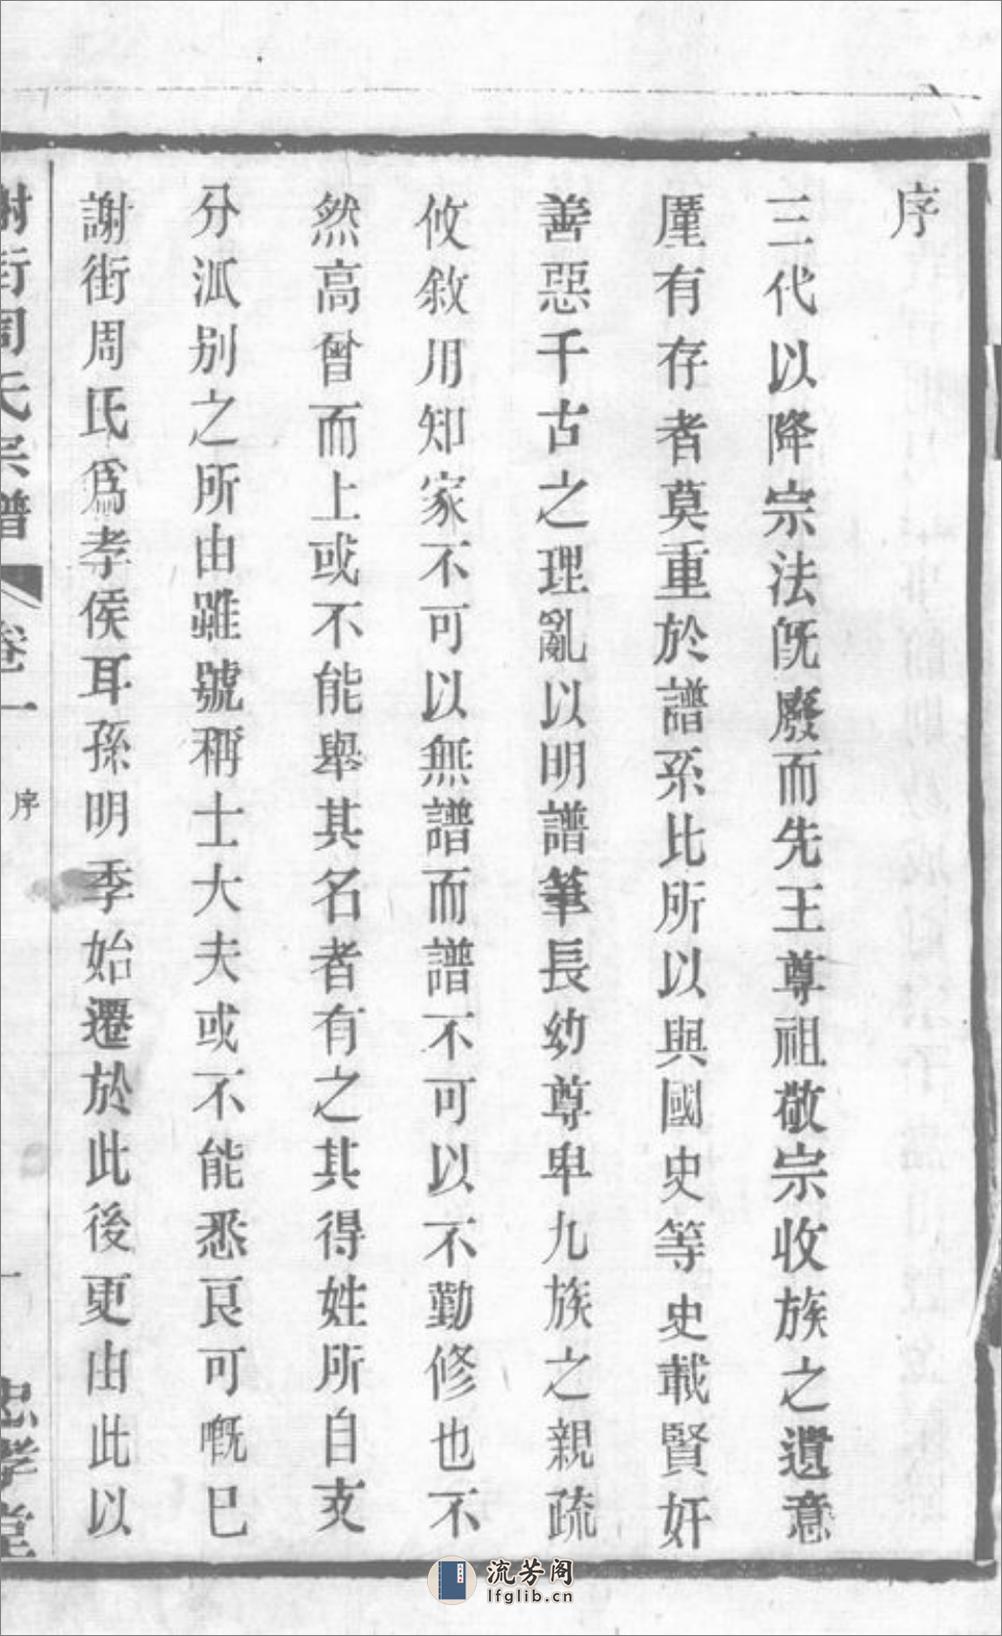 序
三代以降宗法旣廢而先王尊祖敬宗收族之遺意
厪有存者莫重於譜系比所以與國史等史載賢奸
善惡千古之理亂以明譜筆長幼尊卑九族之親疏
攸敘用知家不可以無譜而譜不可以不勤修也不
然高曾而上或不能舉其名者有之其得姓所自支
分派别之所由雖號稱士大夫或不能悉良可嘅已
謝街周氏爲孝侯耳孫明季始遷於此後更由此以
謝街周氏宗譜 卷一 序 一 忠孝堂
流芳阁
lfglib.cn